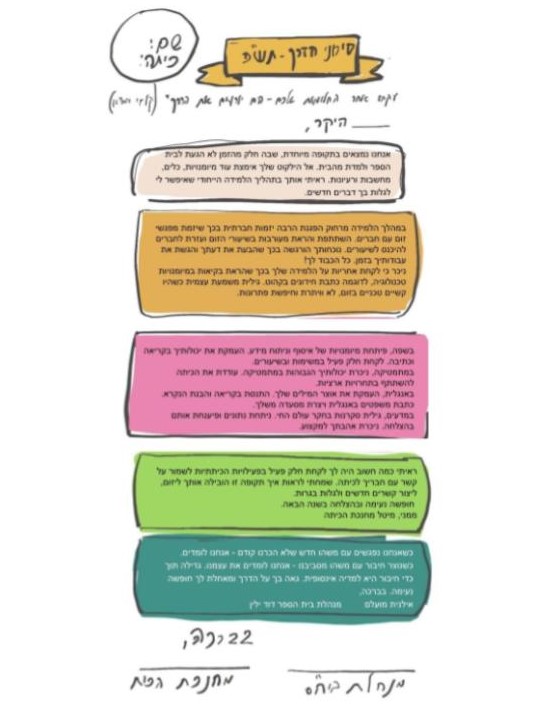 שם:
כיתה:
סימני הדרך - תש"פ
היקר, ____
אנחנו נמצאים בתקופה מיוחדת, שבה חלק מהזמן לא הגעת לבית
הספר ולמדת מהבית. אל הילקוט שלך אימצת עוד מיומנויות, כלים,
מחשבות ורעיונות. ראיתי אותך בתהליך הלמידה הייחודי שאיפשר לי
לגלות בך דברים חדשים.
במהלך הלמידה מרחוק הפגנת הרבה יזמות חברתית בכך שיזמת מפגשי
זום עם חברים. השתתפת והראת מעורבות בשיעורי הזום ועזרת לחברים
להיכנס לשיעורים. נוכחותך הורגשה בכך שהבעת את דעתך והגשת את
עבודותיך בזמן. כל הכבוד לך!
ניכר כי לקחת אחריות על הלמידה שלך בכך שהראת בקיאות במיומנויות
טכנולוגיה, לדוגמה כתבת חידונים בקהוט. גילית משמעת עצמית כשהיו
קשיים טכניים בזום, לא וויתרת וחיפשת פתרונות.
בשפה, פיתחת מיומנויות של איסוף וניתוח מידע. העמקת את יכולותיך בקריאה
וכתיבה. לקחת חלק פעיל במשימות ובשיעורים.
במתמטיקה, ניכרת יכולותיך הגבוהות במתמטיקה. עודדת את הכיתה
להשתתף בתחרויות ארציות.
באנגלית, העמקת את אוצר המילים שלך. התנסת בקריאה והבנת הנקרא.
כתבת משפטים באנגלית ויצרת מסעדה משלך.
במדעים, גילית סקרנות בחקר עולם החי. ניתחת נתונים ופיענחת אותם
בהצלחה. ניכרת אהבתך למקצוע.
ראיתי כמה חשוב היה לך לקחת חלק פעיל בפעילויות הכיתתיות לשמור על
קשר עם חבריך לכיתה. שמחתי לראות איך תקופה זו הובילה אותך ליזום,
ליצור קשרים חדשים ולגלות בגרות.
חופשה נעימה ובהצלחה בשנה הבאה.
ממני, מיטל מחנכת הכיתה
כשאנחנו נפגשים עם משהו חדש שלא הכרנו קודם - אנחנו לומדים.
כשנוצר חיבור עם משהו מסביבנו - אנחנו לומדים את עצמנו. גדילה תוך
כדי חיבור היא למידה אינסופית. גאה בך על הדרך ומאחלת לך חופשה
נעימה. בברכה,
אילנית מועלם מנהלת בית הספר דוד ילין
בברכה,
מנהלת ביה"ס מחנכת הכיתה